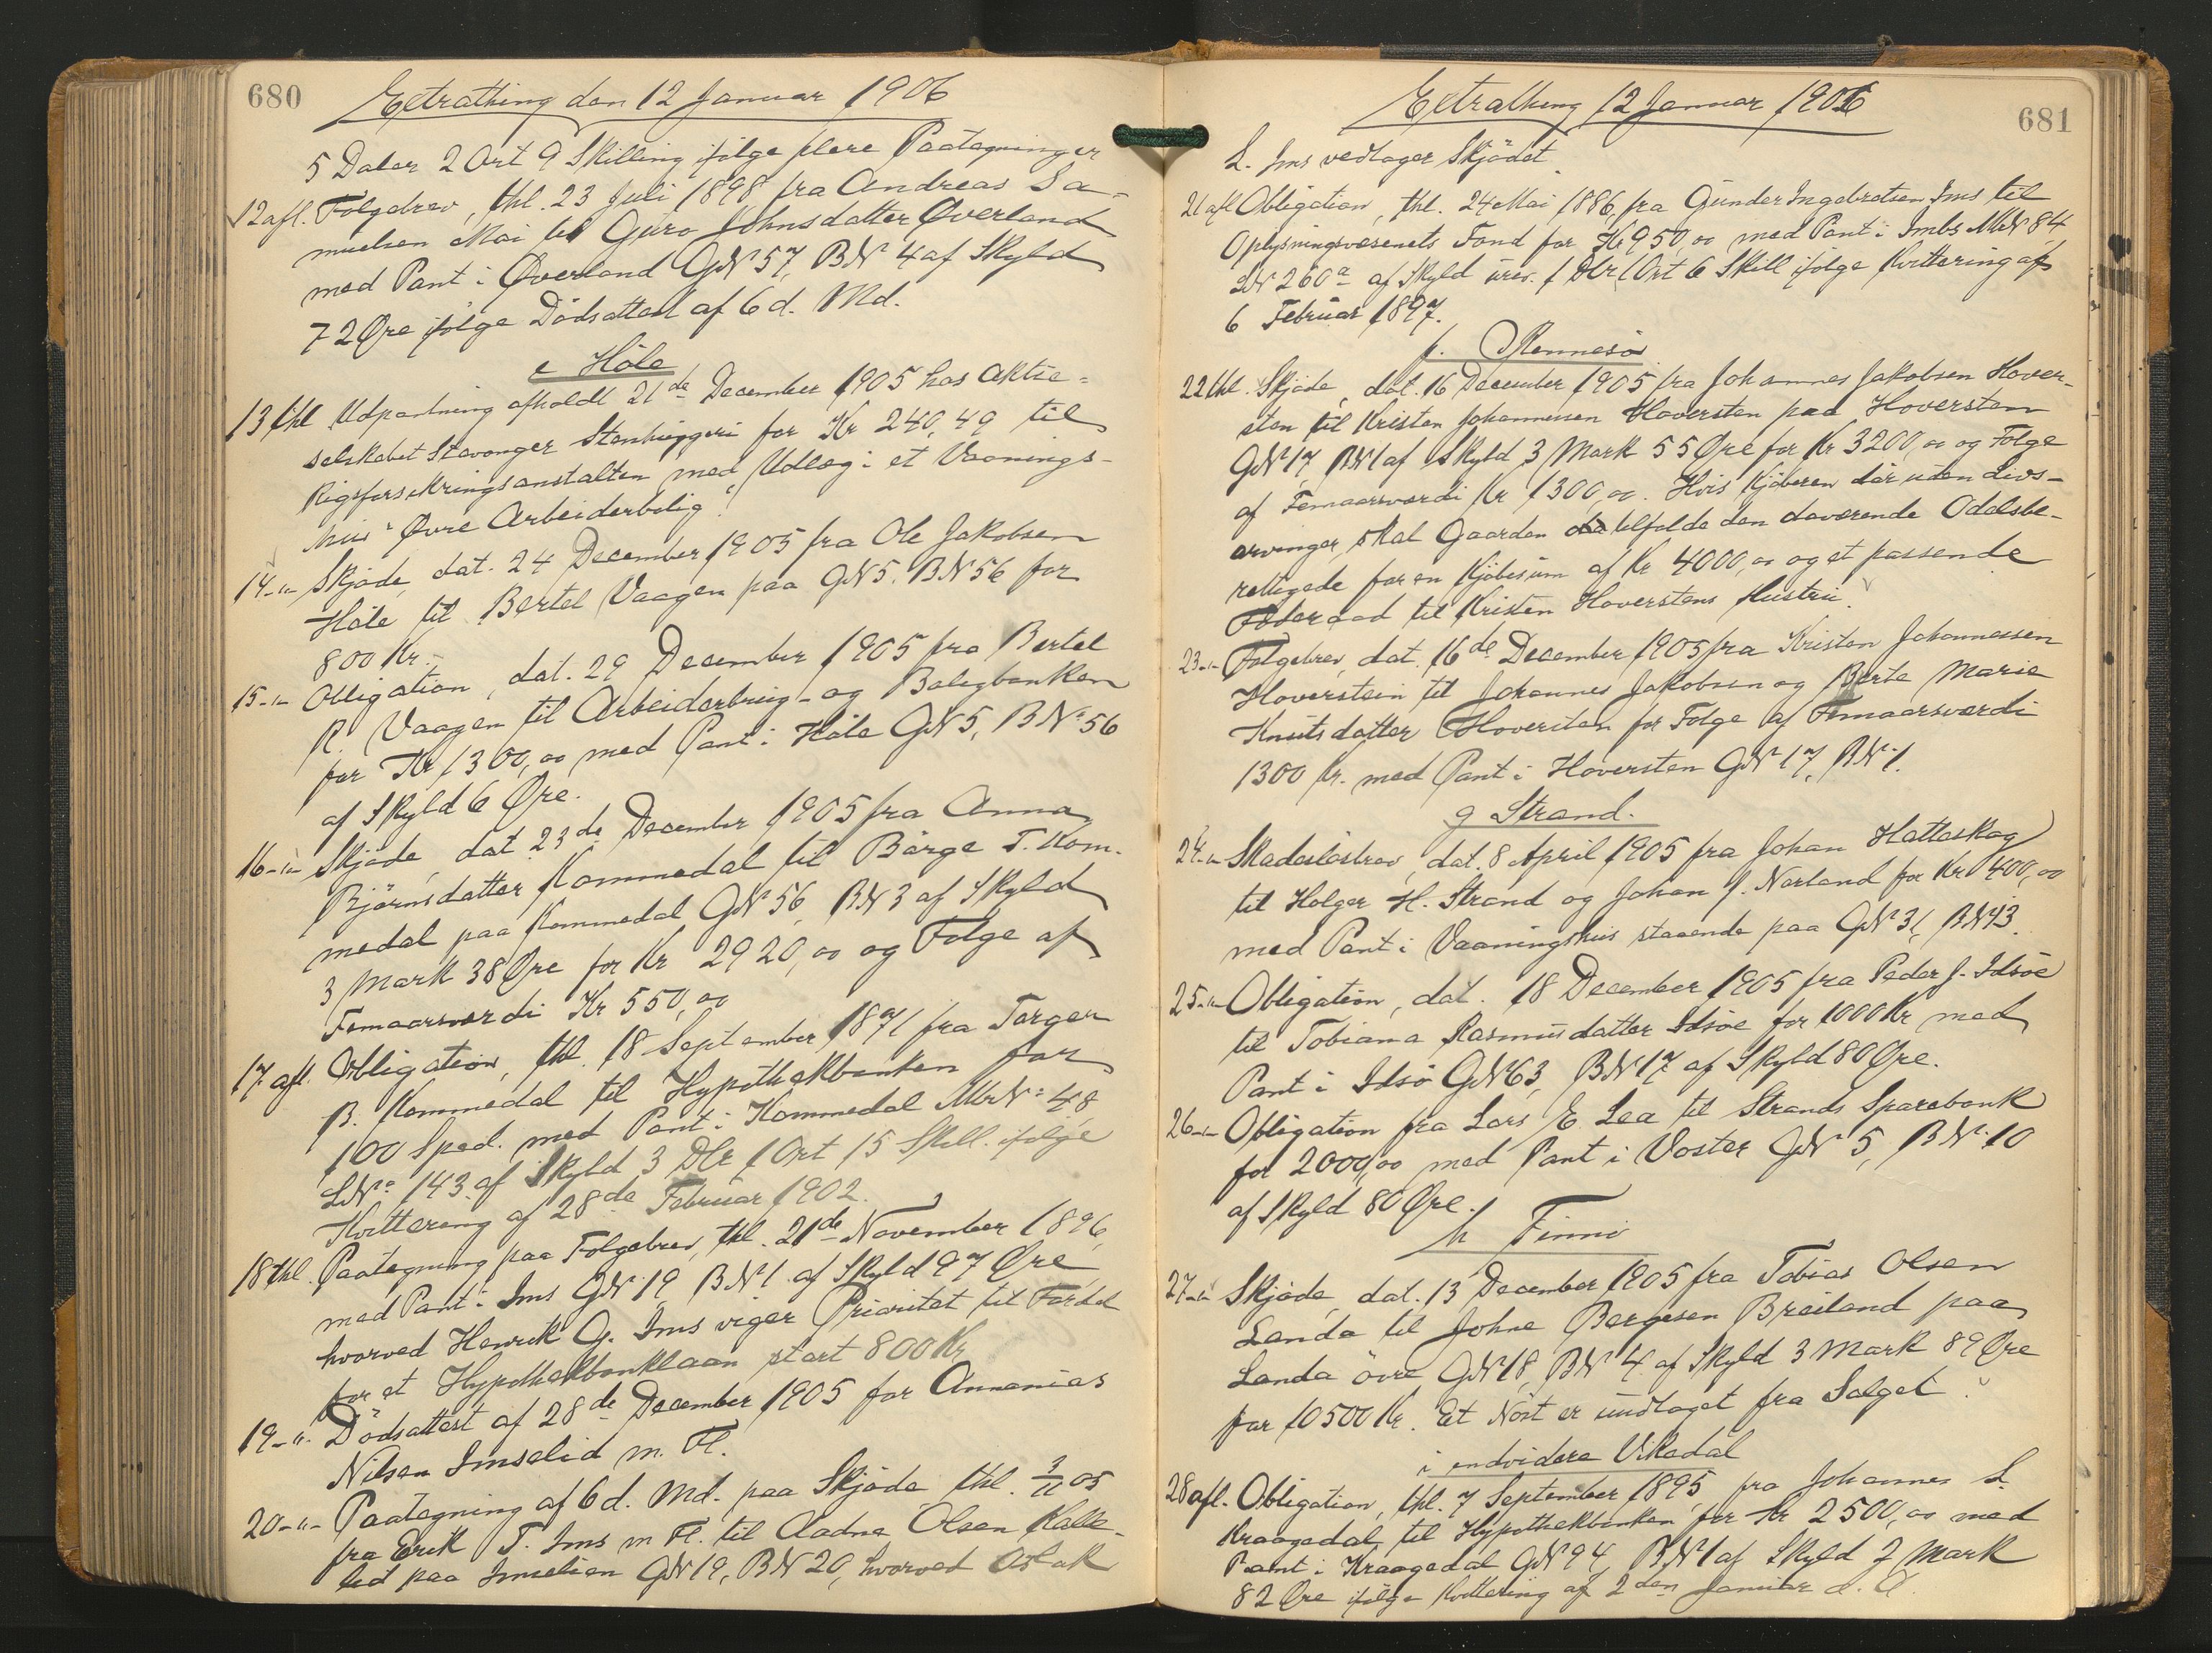 680
Extrathing den 12 Januar 1906
5 Daler 2 Ort 9 Skilling ifølge flere Paategninger
12 afl. Følgebrev, thl. 23 Juli 1898 fra Andreas Sa-
muelsen Mai til Guro Johnsdatter Øverland
med Pant i Øverland GN 57, BN 4 af Skyld
72 Øre ifølge Dødsattest af 6 d. Md.
e Höle
13 thl Udpantning afholdt 21de December 1905 hos Aktie-
selskabet Stavanger Stenhuggeri for Kr 240,49 til
Rigsforsikringsanstalten med Udlæg i et Vaanings-
hus "Øvre Arbeiderbolig".
14-"- Skjöde, dat. 24 December 1905 fra Ole Jakobsen
Höle til Bertel Vaagen paa GN 5, BN 56 for
800 Kr.
15-"- Obligation, dat. 29 December 1905 fra Bertel
R. Vaagen til Arbeiderbrug- og Boligbanken
for Kr 1300,00 med Pant i Höle GN 5, BN: 56
af Skyld 6 Øre.
16-"- Skjöde, dat 23de December 1905 fra Anna
Björnsdatter Kommedal til Börge T. Kom-
medal paa Kommedal GN 56, BN 3 af Skyld
3 Mark 38 Øre for Kr 2920,00 og Følge af
Femaarsværdi Kr 550,00
17. afl. Obligation, thl. 18 September 1871 fra Torger
B. Kommedal til Hypothekbanken for
100 Spad. med Pant i Kommedal MrN: 48
LN: 143 af Skyld 3 Dlr 1 Ort 15 Skill. ifølge
Kvittering af 28de Februar 1902.
18 thl. Paategning paa Følgebrev, thl. 21de November 1896,
med Pant i Ims GN 19, BN 1 af Skyld 97 Øre
hvorved Henrik G. Ims viger Prioritet til Fordel
for et Hypothekbanklaan stort 800 Kr
19-"- Dödsattest af 28de December 1905 for Annanias
Nilsen Imselid m. Fl.
20-"- Paategning af 6 d. Md. paa Skjöde thl. 3/11 05
fra Erik T. Ims m Fl. til Aadne Olsen Kalle-
lid paa Imselien GN 19, BN 20, hvorved Aslak
681
Extrathing 12 Januar 1906
L. Ims vedtager Skjödet.
21 afl Obligation, thl. 24 Mai 1886, fra Gunder Ingebretsen Ims til
Oplysningsvæsenets Fond for Kr 950,00 med Pant i Imbs MN 84
LN 260a af Skyld urev. 1 Dlr 1 Ort 6 Skill ifølge Kvittering af
6 Februar 1897.
f. Rennesö
22 thl. Skjöde, dat. 16 December 1905 fra Johannes Jakobsen Hover-
sten til Kristen Johannessen Hoversten paa Hoversten
GN 17, BN 1 af Skyld 3 Mark 55 Øre for Kr 3200,00 og Følge
af Femaarsværdi Kr 1300,00. Hvis Kjöberen dör uden Livs-
arvinger, skal Gaarden tilfalde den daværende Odelsbe-
rettigede for en Kjöbesum af Kr 4000,00 og et passende
Föderaad til Kristen Hoverstens Hustru.
23-"- Følgebrev, dat. 16de December 1905 fra Kristen Johannessen
Hoverstein til Johannes Jakobsen og Berte Marie
Knutsdatter Hoversten for Følge af Femaarsværdi
1300 Kr. med Pant i Hoversten GN 17, BN 1.
g Strand.
24-"- Skadesløsbrev, dat. 8 April 1905 fra Johan Hatteskog
til Holger H. Strand og Johan J. Nørland for Kr 400,00
med Pant i Vaaningshus staaende paa GN 31, BN 43.
25-"- Obligation, dat. 18 December 1905 fra Peder J. Idsöe
til Tobiana Rasmusdatter Idsöe for 1000 Kr med
Pant i Idsö GN 63, BN 17 af Skyld 80 Øre.
26-"- Obligation fra Lars E. Lea til Strands Sparebank
for 2000,00 med Pant i Voster GN 5, BN: 10
af Skyld 80 Øre.
h Finnö
27-"- Skjöde, dat. 13 December 1905 fra Tobias Olsen
Landa til Johne Bergesen Breiland paa
Landa övre GN 18, BN 4 af Skyld 3 Mark 89 Øre
for 10500 Kr. Et Nöst er undtaget fra Salget.
i endvidere Vikedal
28 afl. Obligation, thl. 7 September 1895, fra Johannes L.
Kraagedal til Hypothekbanken for Kr 2500,00 med
Pant i Kraagedal GN 94, BN 1 af Skyld 7 Mark
82 Øre ifølge Kvittering af 2den Januar d. A.